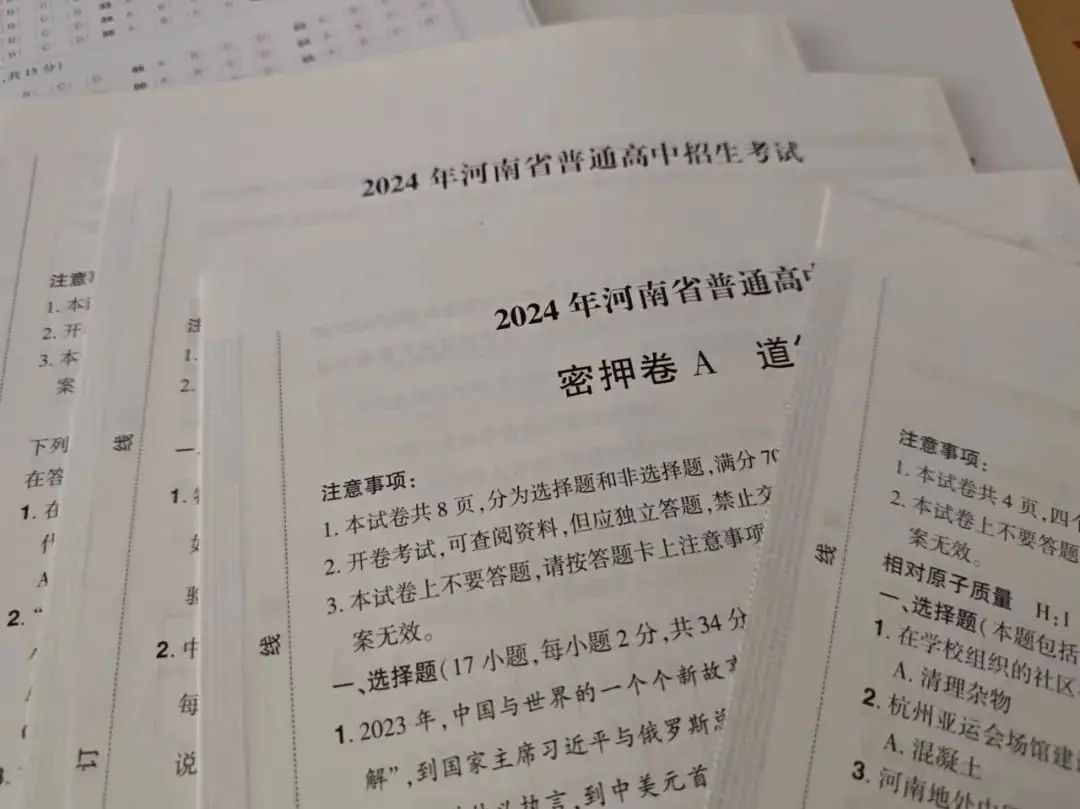 共15分)
2024 年河南省普通高中招生考试
2024 年河南省普通高
密押卷 A 道
注意事项:
1. 本试卷共 8 页,分为选择题和非选择题,满分 70
2. 开卷考试,可查阅资料,但应独立答题,禁止交
3. 本试卷上不要答题,请按答题卡上注意事项
案无效。
一、选择题(17 小题,每小题 2 分,共 34 分
1. 2023 年,中国与世界的一个个新故事
解”,到国家主席习近平与俄罗斯总
执言,到中美元首
线
注意事项:
1. 本试卷共 4 页,四个
2. 本试卷上不要答题
案无效。
相对原子质量 H:1
一、选择题(本题包括
1. 在学校组织的社区
A. 清理杂物
2. 杭州亚运会场馆建
A. 混凝土
3. 河南地处中
线
注意
1. 本
2. 开
3. 本
案
下列
在答
1. 在
A
2. “
线
订
1.
2.
一
1.
2. 中
每
说